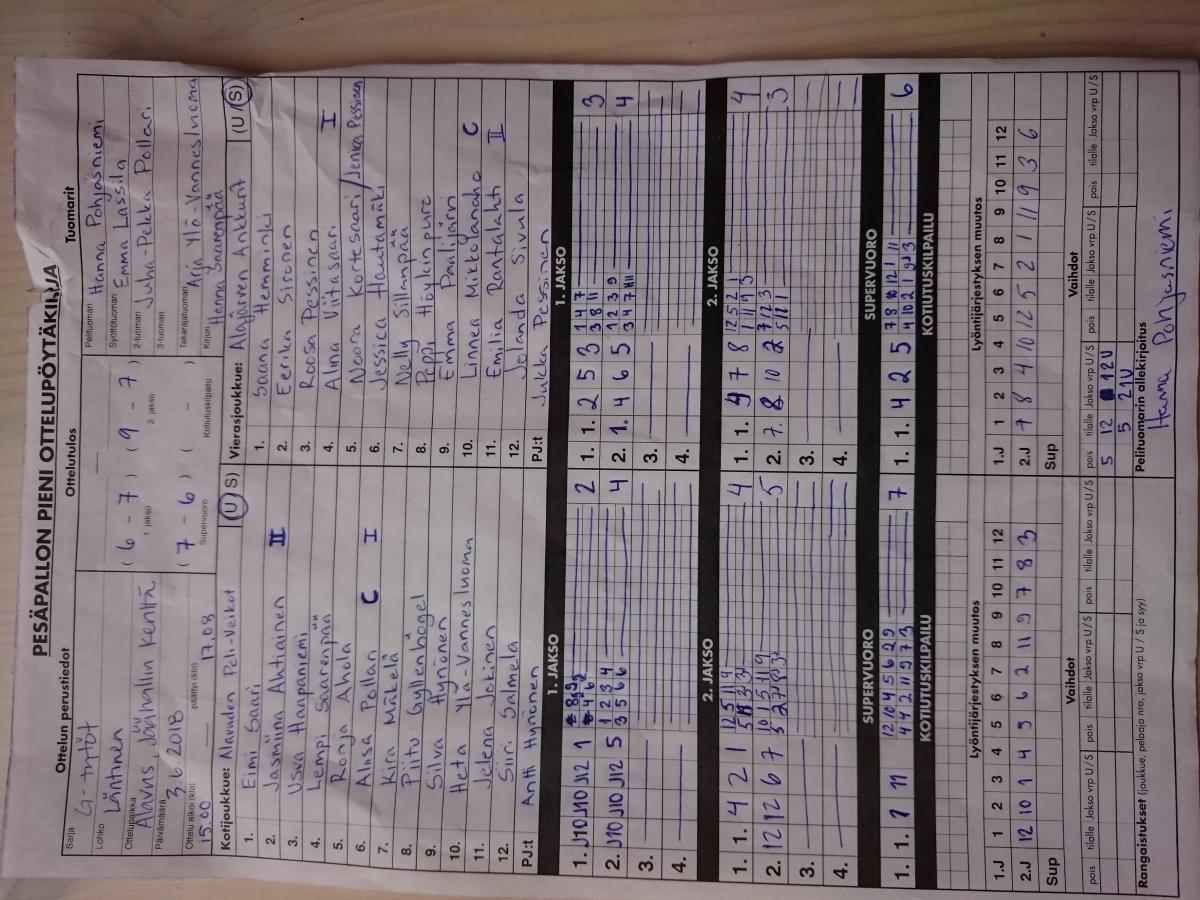 PESÄPALLON PIENI OTTELUPÖYTÄKIRJA
Ottelun perustiedot
Ottelutulos
Tuomarit
Sarja G-tytöt
Lohko Läntinen
Ottelupaikka Alavus, Jäähallin kenttä
Päivämäärä 3.6.2018
Ottelu alkoi (klo) 15.00 päättyi (klo) 17.08
( 6 - 7 ) ( 9 - 7 )
1. jakso 2. jakso
( 7 - 6 ) ( - )
Supervuoro Kotiutuskilpailu
Pelituomari Hanna Pohjasniemi
Syöttötuomari Emma Lassila
2-tuomari Juha-Pekka Pollari
3-tuomari
Takarajatuomari Arja Ylä-Vannesluoma
Kirjuri Hanna Saarenpää
Kotijoukkue: Alavuden Peli-Veikot (U/S)
1. Eimi Saari
2. Jasmiina Ahtiainen II
3. Usva Haapaniemi
4. Lempi Saarenpää
5. Ronja Ahola
6. Aliisa Pollari C I
7. Kira Mäkelä
8. Piitu Gyllenbögel
9. Silva Hynönen
10. Heta Ylä-Vannesluoma
11. Jelena Jokinen
12. Siiri Salmela
PJ:t Antti Hynönen
Vierasjoukkue: Alajärven Ankkurit (U/S)
1. Saana Hemminki
2. Eerika Sironen
3. Roosa Pessinen
4. Alma Viitasaari I
5. Noora Kortesaari/Jenica Pessinen
6. Jessica Hautamäki
7. Nelly Sillanpää
8. Peppi Höykinpuro
9. Emma Paalijärvi
10. Linnea Mikkolanaho C
11. Emilia Rantalahti II
12. Jolanda Sivula
PJ:t Jukka Pessinen
1. JAKSO
1. J10 J10 J12 1
2
2. J10 J10 J12 5 1 2 3 4
3 5 6 6
4
3.
4.
1. JAKSO
1. 1. 2 5 3 1 4 7
3 8 11
3
2. 1. 4 6 5 1 2 3 9
4
3.
4.
2. JAKSO
1. 1. 4 2 1
4
2. 12 12 6 7
5
3.
4.
2. JAKSO
1. 1. 9 7 8 12 5 2 1
4
2. 7. 8 10 2 7 12 3
3
3.
4.
SUPERVUORO
1. 1. 1 11 12 10 4 5 6 2 9
4 2 11 9 7 3
7
SUPERVUORO
1. 1. 4 2 5 7 8 10 12 1 11
4 10 2 1 9 3
6
KOTIUTUSKILPAILU
KOTIUTUSKILPAILU
Lyöntijärjestyksen muutos
1.J 1 2 3 4 5 6 7 8 9 10 11 12
2.J 12 10 1 4 5 6 2 11 9 7 8 3
Sup
Lyöntijärjestyksen muutos
1.J 1 2 3 4 5 6 7 8 9 10 11 12
2.J 7 8 4 10 12 5 2 1 11 9 3 6
Sup
Vaihdot
pois tilalle Jakso vrp U/S pois tilalle Jakso vrp U/S pois tilalle Jakso vrp U/S
Vaihdot
pois tilalle Jakso vrp U/S pois tilalle Jakso vrp U/S pois tilalle Jakso vrp U/S
5 12 12U
5 21U
Rangaistukset (joukkue, pelaaja nro, jakso vrp U / S ja syy)
Pelituomarin allekirjoitus
Hanna Pohjasniemi